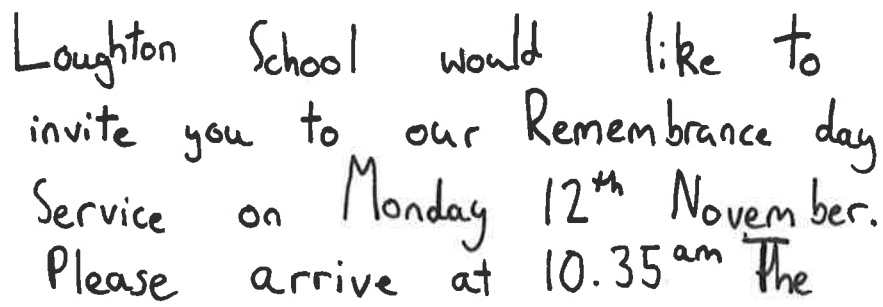 Loughton School would like to
invite you to our Remembrance day
Service on Monday 12th November.
Please arrive at 10.35am The